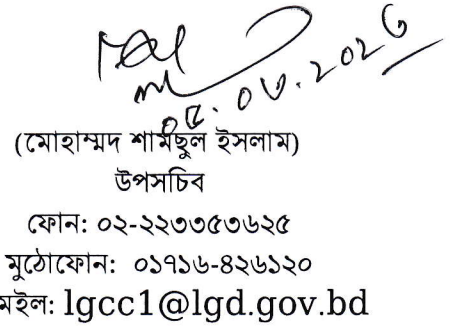 ০৫.০৩.২০২৬
(মোহাম্মদ শামছুল ইসলাম)
উপসচিব
ফোন: ০২-২২৩৩৫৩৬২৫
মুঠোফোন: ০১৭১৬-৪২৬১২০
মইল: lgcc1@lgd.gov.bd